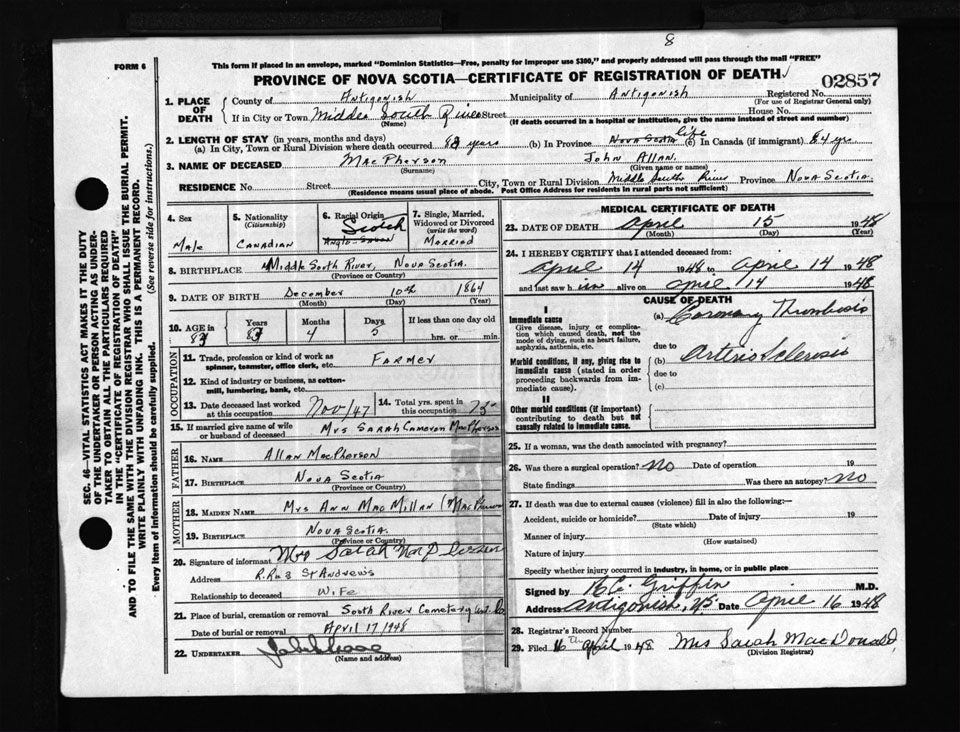 8
FORM 6
This form if placed in an envelope, marked "Dominion Statistics—Free, penalty for improper use $300," and properly addressed will pass through the mail "FREE"
PROVINCE OF NOVA SCOTIA—CERTIFICATE OF REGISTRATION OF DEATH
02857
SEC. 46—VITAL STATISTICS ACT MAKES IT THE DUTY
OF THE UNDERTAKER OR PERSON ACTING AS UNDER-
TAKER TO OBTAIN ALL THE PARTICULARS REQUIRED
IN THE "CERTIFICATE OF REGISTRATION OF DEATH"
AND TO FILE THE SAME WITH THE DIVISION REGISTRAR WHO SHALL ISSUE THE BURIAL PERMIT.
WRITE PLAINLY WITH UNFADING INK. THIS IS A PERMANENT RECORD.
Every item of information should be carefully supplied. (See reverse side for instructions.)
1. PLACE OF DEATH
County of Antigonish Municipality of Antigonish Registered No.
(For use of Registrar General only)
If in City or Town Middle South River Street House No.
(Name) (If death occurred in a hospital or institution, give the name instead of street and number)
2. LENGTH OF STAY (in years, months and days)
(a) In City, Town or Rural Division where death occurred years (b) In Province Nova Scotia life (c) In Canada (if immigrant) 84 yrs.
3. NAME OF DECEASED MacPherson John Allan.
(Surname) (Given name or names)
RESIDENCE No. Street City, Town or Rural Division Middle South River Province Nova Scotia.
(Residence means usual place of abode. Post Office Address for residents in rural parts not sufficient)
4. Sex
Male
5. Nationality
(Citizenship)
Canadian
6. Racial Origin
Scotch
7. Single, Married,
Widowed or Divorced
(write the word)
Married
8. BIRTHPLACE Middle South River, Nova Scotia.
(Province or Country)
9. DATE OF BIRTH December 10th 1864
(Month) (Day) (Year)
10. AGE in Years Months Days If less than one day old
83 4 5 hrs. or min.
OCCUPATION
11. Trade, profession or kind of work as
spinner, teamster, office clerk, etc. Farmer
12. Kind of industry or business, as cotton-
mill, lumbering, bank, etc.
13. Date deceased last worked
at this occupation Nov/47
14. Total yrs. spent in
this occupation 75
15. If married give name of wife
or husband of deceased Mrs Sarah Cameron MacPherson
FATHER
16. Name Allan MacPherson
17. Birthplace Nova Scotia
(Province or Country)
MOTHER
18. Maiden Name Mrs Ann MacMillan (MacPherson
19. Birthplace Nova Scotia.
(Province or Country)
20. Signature of informant Mrs Sarah MacPherson
Address R.R no 3 St Andrews
Relationship to deceased Wife
21. Place of burial, cremation or removal South River Cemetery Ant. Co
Date of burial or removal April 17/1948
22. UNDERTAKER
(Name and address)
MEDICAL CERTIFICATE OF DEATH
23. DATE OF DEATH April 15 1948
(Month) (Day) (Year)
24. I HEREBY CERTIFY that I attended deceased from:
April 14 1948 to April 14 1948
and last saw him alive on April 14 1948
CAUSE OF DEATH
I
Immediate cause (a) Coronary Thrombosis
Give disease, injury or complica-
tion which caused death, not the
mode of dying, such as heart failure,
asphyxia, asthenia, etc.
due to
Morbid conditions, if any, giving rise to
immediate cause (stated in order
proceeding backwards from im-
mediate cause).
(b) Arterio Sclerosis
due to
(c)
II
Other morbid conditions (if important)
contributing to death but not
causally related to immediate cause.
25. If a woman, was the death associated with pregnancy?
26. Was there a surgical operation? No Date of operation 19
State findings Was there an autopsy? No
27. If death was due to external causes (violence) fill in also the following:—
Accident, suicide or homicide? Date of injury 19
(State which)
Manner of injury
(How sustained)
Nature of injury
Specify whether injury occurred in industry, in home, or in public place
Signed by Griffin M.D.
Address Antigonish, NS. Date April 16 1948
28. Registrar's Record Number
29. Filed 16th April 1948 Mrs Sarah MacDonald
(Division Registrar)